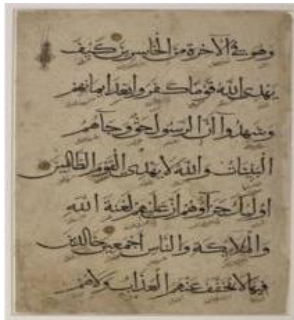 وهو في الآخرة من الخاسرين كيف
يهدي الله قوما كفروا بعد ايمانهم
وشهدوا أن الرسول حق وجاءهم
البينات والله لا يهدي القوم الظالمين
اولئك جزآؤهم أن عليهم لعنة الله
والملائكة والناس أجمعين خالدين
فيها لا يخفف عنهم العذاب ولا هم